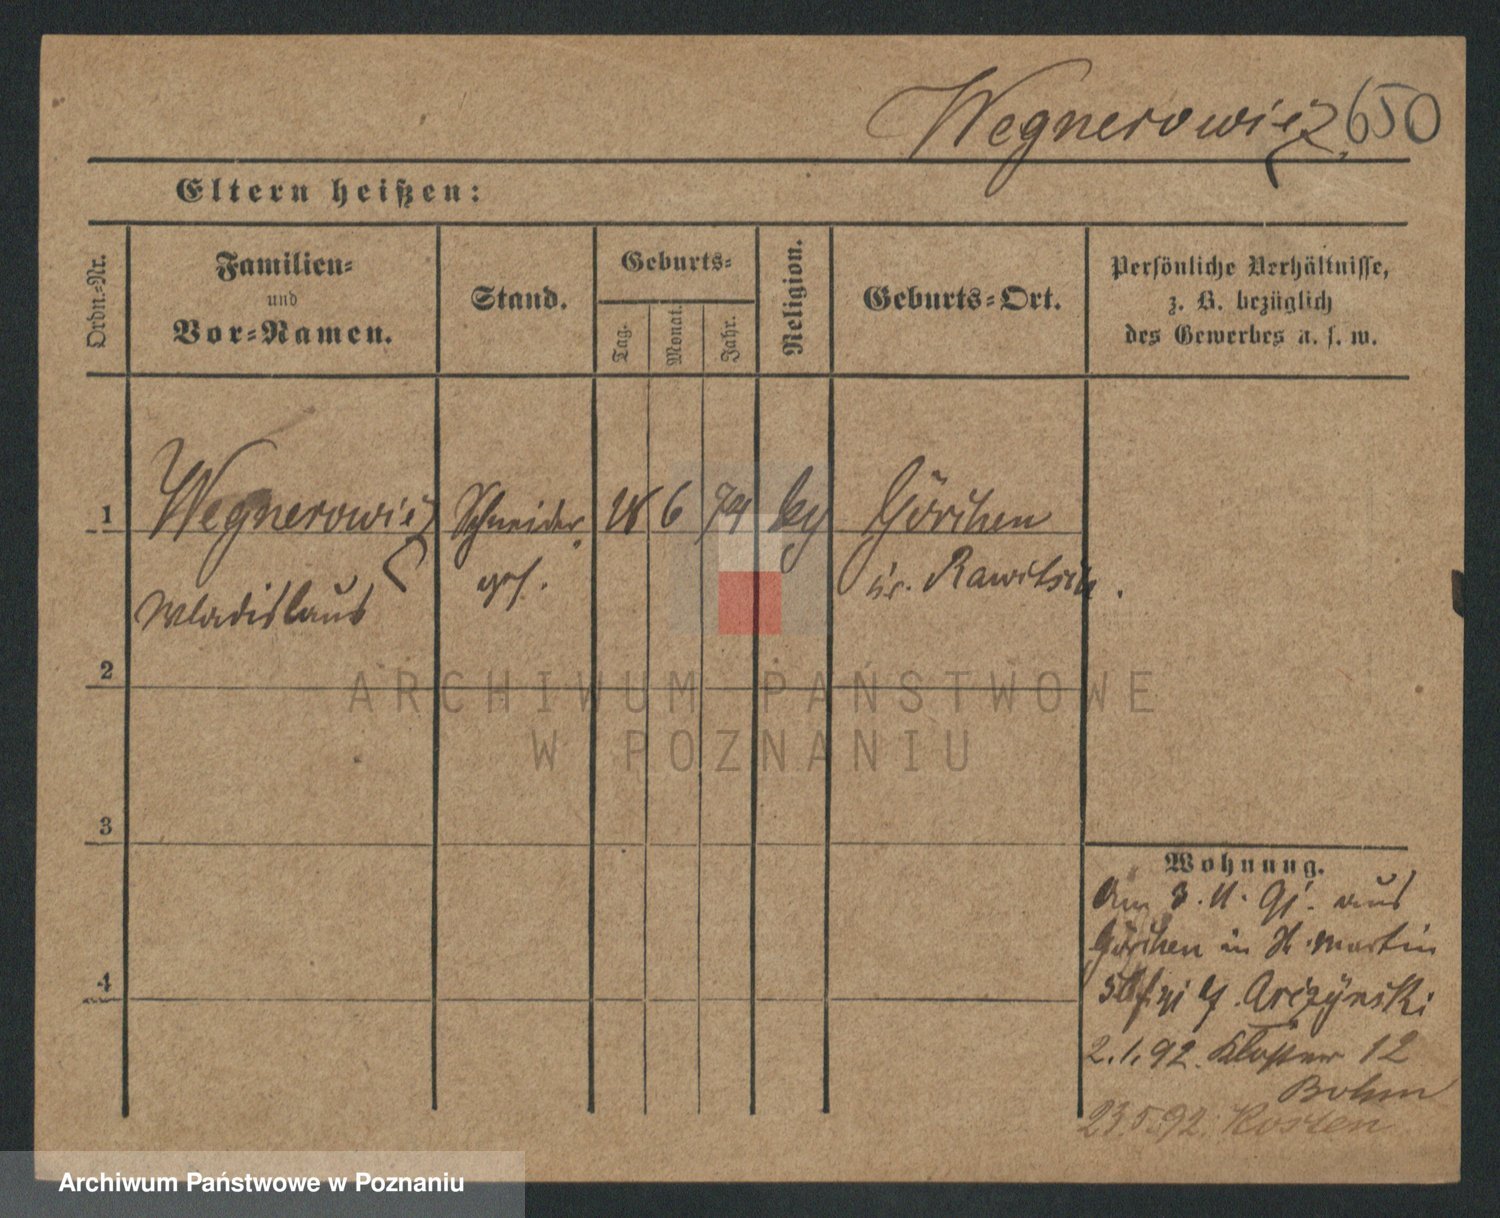 Wegnerowicz 650
Eltern heißen:
Ordn.-Nr.
Familien-
und
Vor-Namen.
Stand.
Geburts-
Tag.
Monat.
Jahr.
Religion.
Geburts-Ort.
Persönliche Verhältnisse,
z. B. bezüglich
des Gewerbes u. s. w.
1 Wegnerowicz Schneider 6 74 Görchen
ges. Kr. Rawitsch.
Wladislaus
2
3
4
Wohnung.
Am 3. 11. 91. aus
Görchen in St. Martin
Arczynski
2.1.92. Kloster 12
Bohm
23.5.92. Kosten
ARCHIWUM PAŃSTWOWE
W POZNANIU
Archiwum Państwowe w Poznaniu